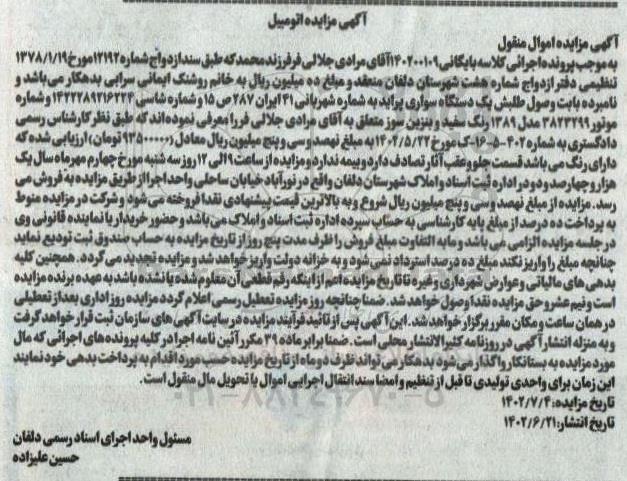 آگهی مزایده اتومبیل
آگهی مزایده اموال منقول
به موجب پرونده اجرائی کلاسه بایگانی ۱۴۰۲۰۰۱۰۹ آقای مرادی جلالی فر فرزند محمد که طبق سند ازدواج شماره ۱۲۱۹۲ مورخ ۱۳۷۸/۱/۱۹
تنظیمی دفتر ازدواج شماره هشت شهرستان دلفان منعقد و مبلغ ده میلیون ریال به خانم روشنک ایمانی سرابی بدهکار می‌باشد و
نامبرده بابت وصول طلبش یک دستگاه سواری پراید به شماره شهربانی ۴۱ ایران ۲۸۷ ص ۱۵ و شماره شاسی ۱۴۲۲۲۸۹۲۱۶۲۲۴ و شماره
موتور ۳۸۲۳۲۹۹ مدل ۱۳۸۹ رنگ سفید و بنزین سوز متعلق به آقای مرادی جلالی فر را معرفی نموده‌اند که طبق نظر کارشناس رسمی
دادگستری به شماره ۴۰۲-۵-۱۶-ک مورخ ۱۴۰۲/۵/۲۲ به مبلغ نهصد و سی و پنج میلیون ریال معادل (۹۳۵۰۰۰۰۰ تومان) ارزیابی شده که
دارای رنگ می باشد قسمت جلو و عقب آثار تصادف دارد و بیمه ندارد و مزایده از ساعت ۹ الی ۱۲ روز سه شنبه مورخ چهارم مهرماه سال یک
هزار و چهارصد و دو در اداره ثبت اسناد و املاک شهرستان دلفان واقع در نورآباد خیابان ساحلی واحد اجرا از طریق مزایده به فروش می
رسد. مزایده از مبلغ نهصد و سی و پنج میلیون ریال شروع و به بالاترین قیمت پیشنهادی نقدا فروخته می شود و شرکت در مزایده منوط
به پرداخت ده درصد از مبلغ پایه کارشناسی به حساب سپرده اداره ثبت اسناد و املاک می باشد و حضور خریدار یا نماینده قانونی وی
در جلسه مزایده الزامی می باشد و مابه التفاوت مبلغ فروش را ظرف مدت پنج روز از تاریخ مزایده به حساب صندوق ثبت تودیع نماید
چنانچه مبلغ را واریز نکند مبلغ ده درصد استرداد نمی شود و به خزانه دولت واریز خواهد شد و مزایده تجدید می گردد. همچنین کلیه
بدهی های مالیاتی و عوارض شهرداری و غیره تا تاریخ مزایده اعم از اینکه رقم قطعی آن معلوم شده یا نشده باشد به عهده برنده مزایده
است و نیم عشر و حق مزایده نقدا وصول خواهد شد. ضمنا چنانچه روز مزایده تعطیل رسمی اعلام گردد مزایده روز اداری بعد از تعطیلی
در همان ساعت و مکان مقرر برگزار خواهد شد. این آگهی پس از تائید فرآیند مزایده در سایت آگهی های سازمان ثبت قرار خواهد گرفت
و به منزله انتشار آگهی در روزنامه کثیرالانتشار محلی است. ضمنا برابر ماده ۳۹ مکرر آئین نامه اجرا در کلیه پرونده‌های اجرائی که مال
مورد مزایده به بستانکار واگذار می شود بدهکار می تواند ظرف دو ماه از تاریخ مزایده حسب مورد اقدام به پرداخت بدهی خود نمایند
این زمان برای واحدی تولیدی تا قبل از تنظیم و امضا سند انتقال اجرایی اموال یا تحویل مال منقول است.
تاریخ مزایده: ۱۴۰۲/۷/۴
تاریخ انتشار: ۱۴۰۲/۶/۲۱
مسئول واحد اجرای اسناد رسمی دلفان
حسین علیزاده
۰۲۱-۸۸۳۴۹۶۷۰-۵